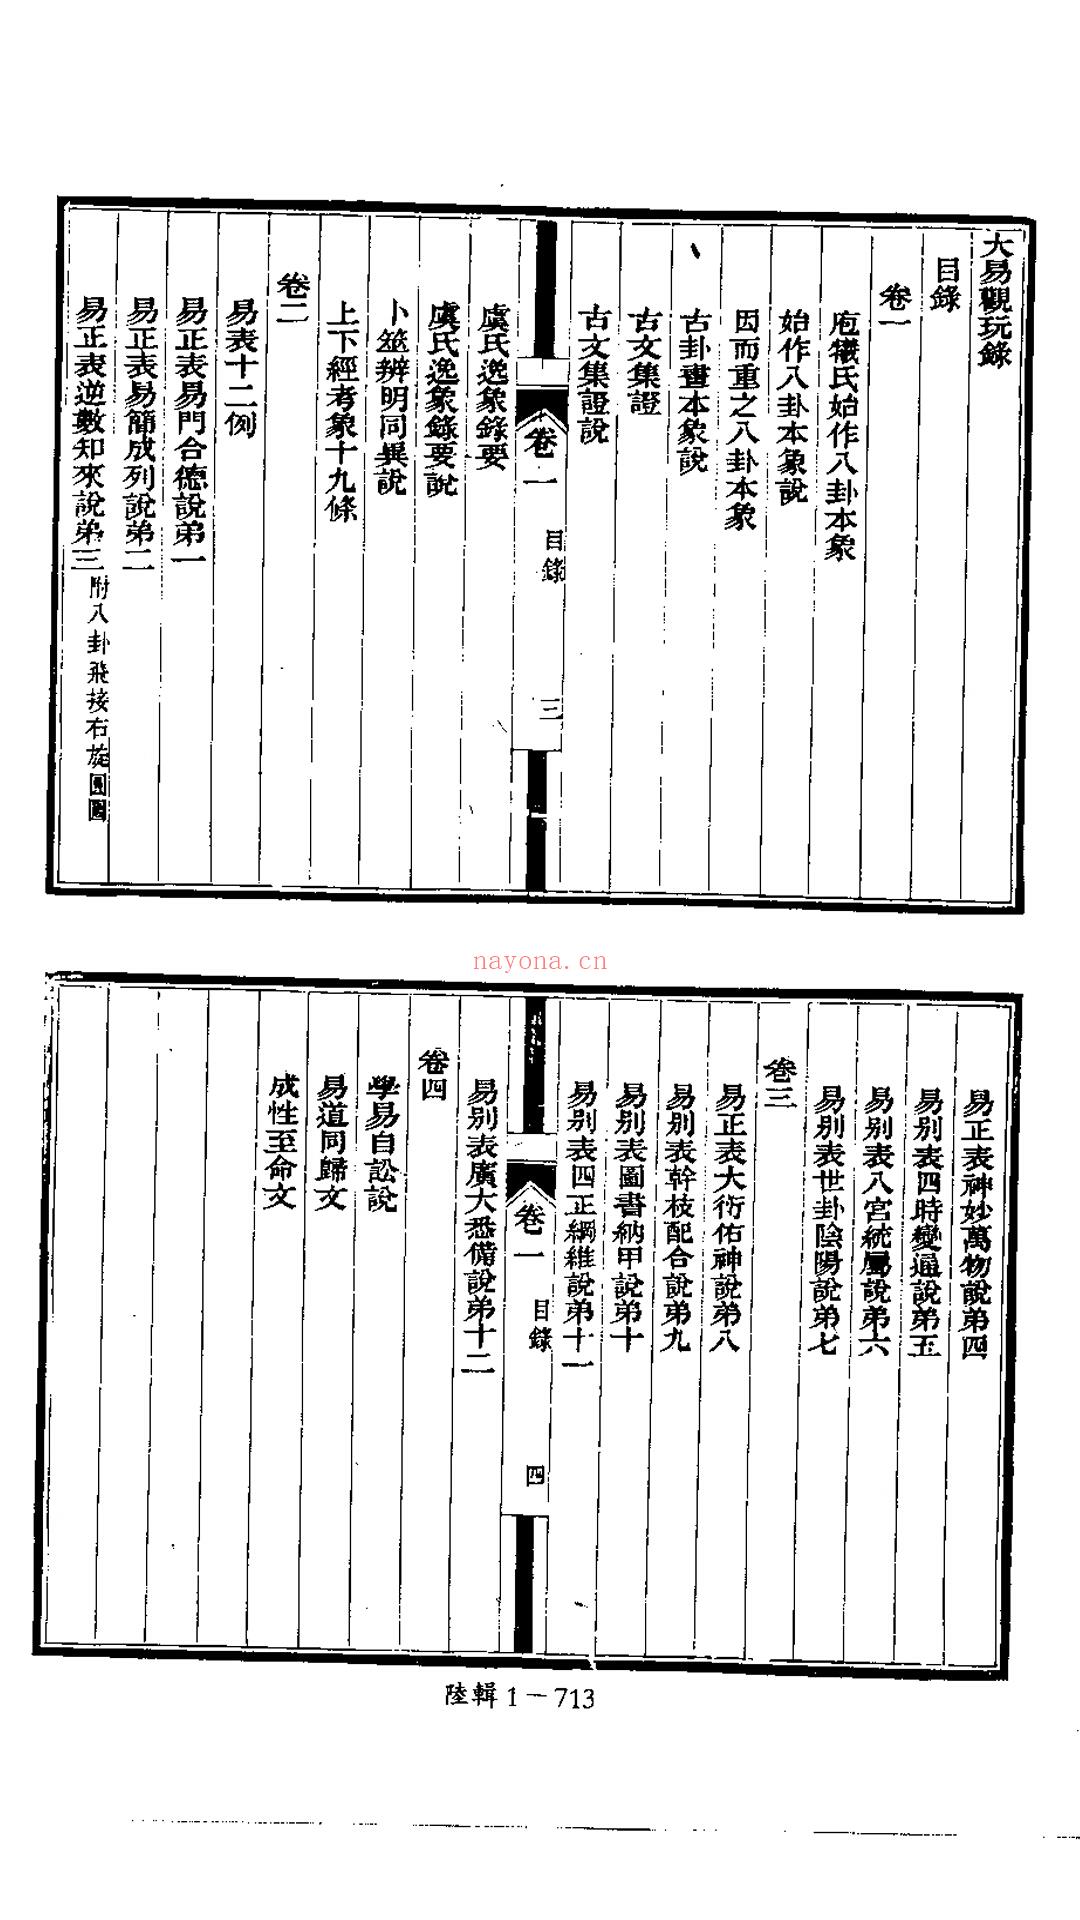 大易觀玩錄
目錄
卷一
庖犧氏始作八卦本象
始作八卦本象說
因而重之八卦本象
古卦畫本象說
古文集證
古文集證說
卷一 目錄 三
虞氏逸象錄要
虞氏逸象錄要說
卜筮辨明同異說
上下經考象十九條
卷二
易表十二例
易正表易門合德說弟一
易正表易簡成列說弟二
易正表逆數知來說弟三 附八卦飛接右旋圓圖
nayona.cn
易正表神妙萬物說弟四
易別表四時變通說弟五
易別表八宮統屬說弟六
易別表世卦陰陽說弟七
卷三
易正表大衍佑神說弟八
易別表幹枝配合說弟九
易別表圖書納甲說弟十
易別表四正綱維說弟十一
卷一 目錄 四
易別表廣大悉備說弟十二
卷四
學易自訟說
易道同歸文
成性至命文
陸輯 1－713